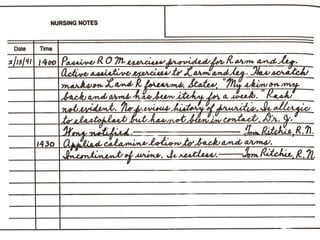 NURSING NOTES
Date Time
2/13/91 1400 Passive R O M exercises provided for R arm and leg.
Active assistive exercises to L arm and leg. Has scratch
marks on L and R forearms, States, "My skin on my
back and arms has been itchy for a week." Rash
not evident. No previous history of pruritis. Is allergic
to elastoplast but has not been in contact. Dr. J.
Wong notified. Tom Ritchie, R.N.
1430 Applied calamine lotion to back and arms.
Incontinent of urine. Is restless. Tom Ritchie, R.N.